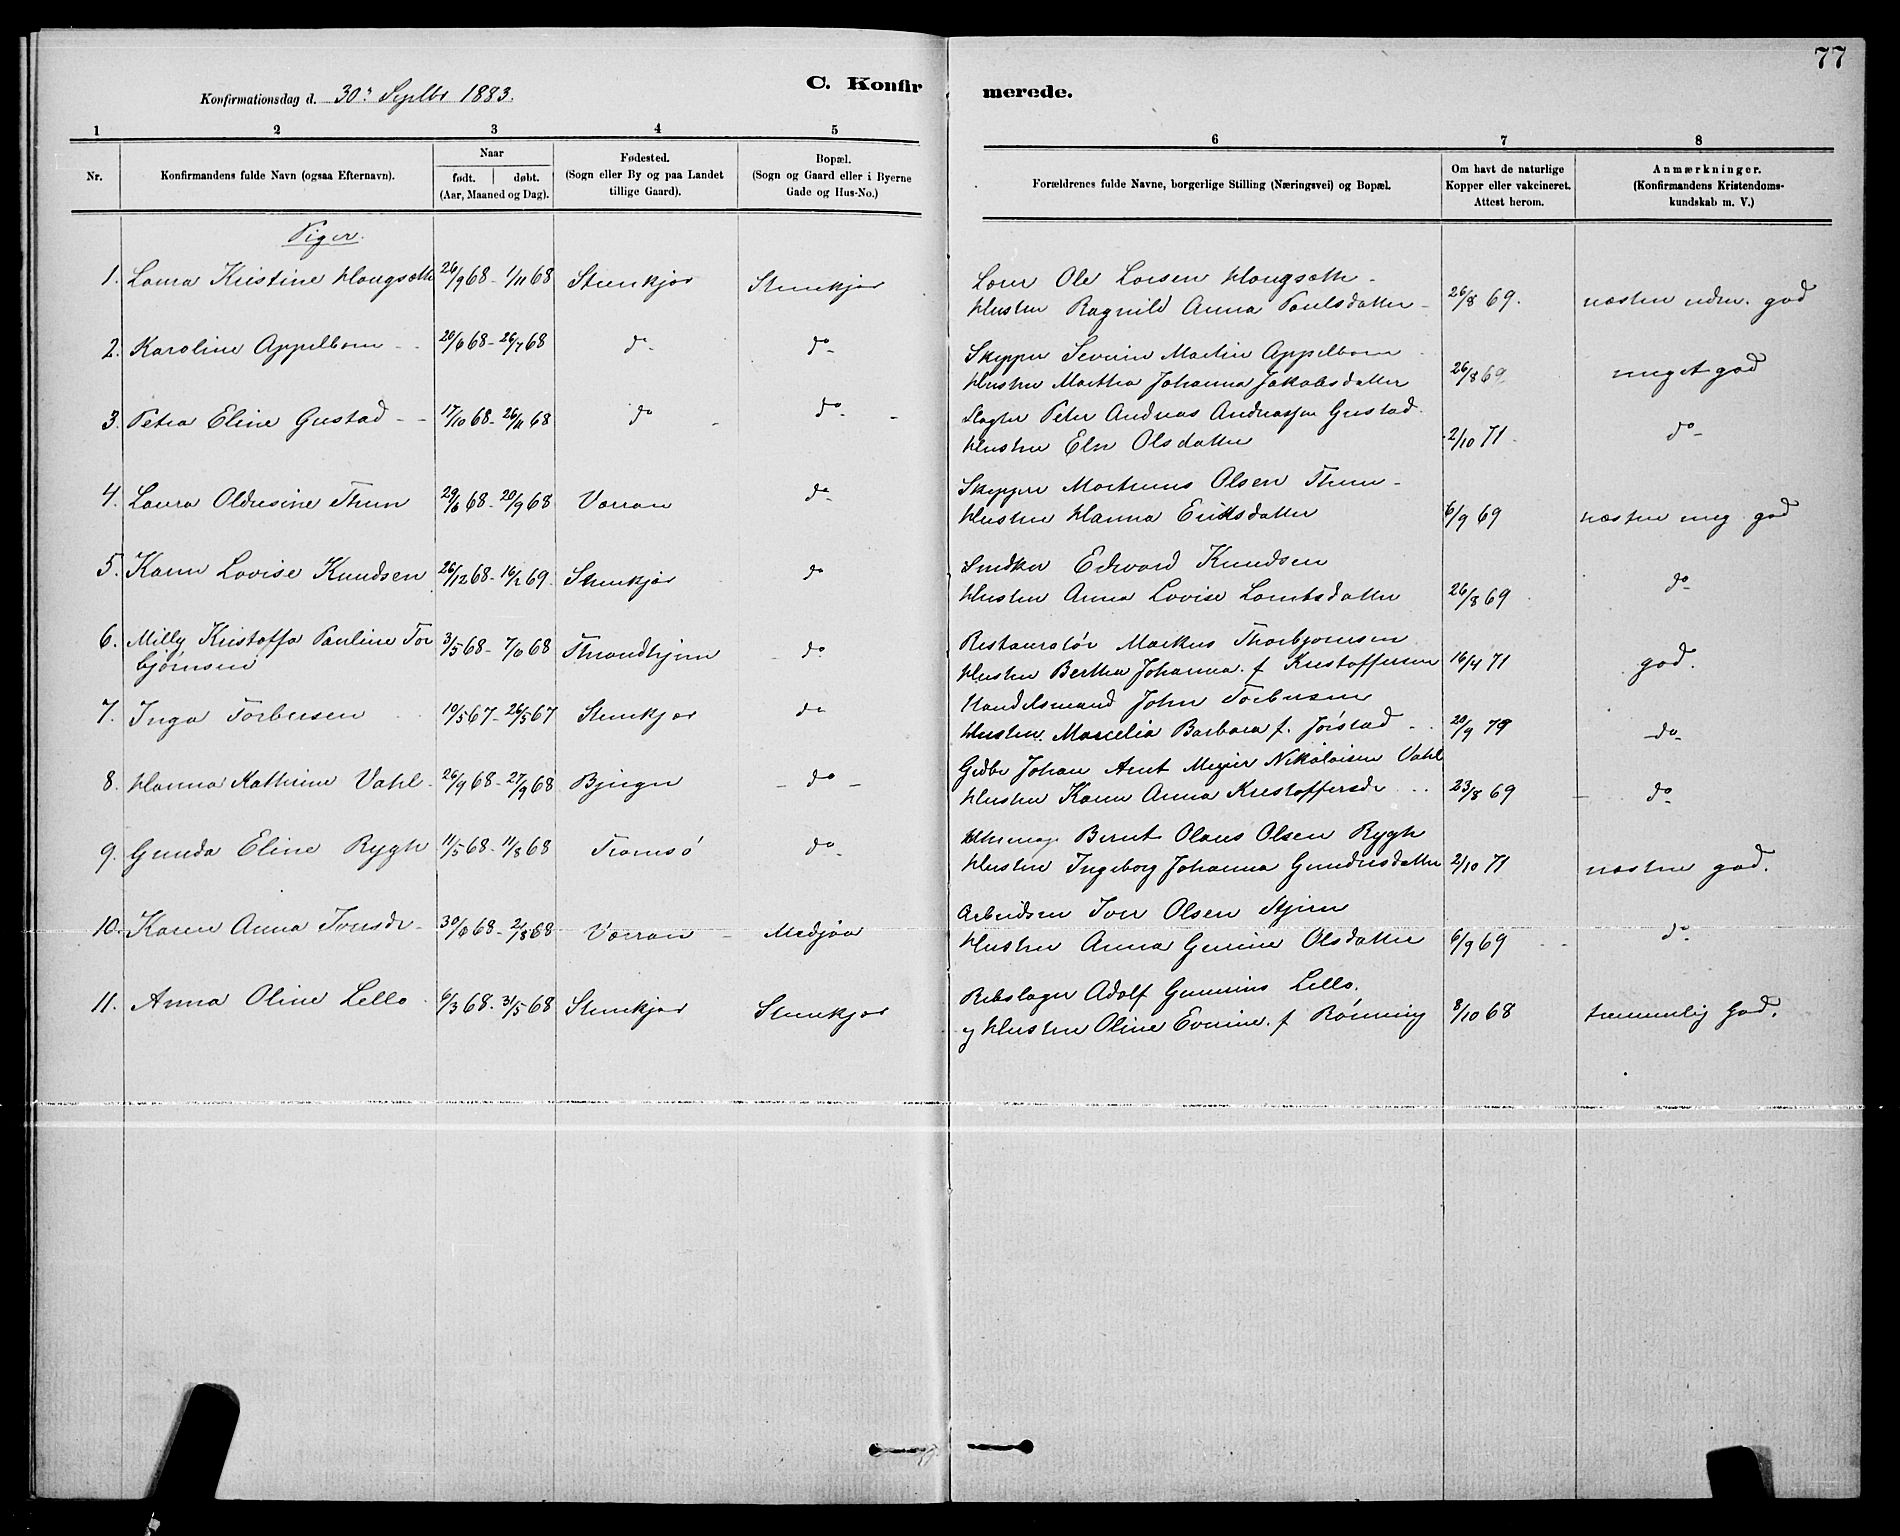 77
C. Konfirmerede.
Konfirmationsdag d. 30t Septbr 1883.
1 2 3 4 5 6 7 8
Nr. Konfirmandens fulde Navn (ogsaa Efternavn). Naar født. døbt. (Aar, Maaned og Dag). Fødested. (Sogn eller By og paa Landet tillige Gaard). Bopæl. (Sogn og Gaard eller i Byerne Gade og Hus-No.) Forældrenes fulde Navne, borgerlige Stilling (Næringsvei) og Bopæl. Om havt de naturlige Kopper eller vakcineret. Attest herom. Anmærkninger. (Konfirmandens Kristendomskundskab m. V.)
Piger.
1. Laura Kristine Haugsæth 26/9 68 - 1/11 68 Stenkjær Stenkjær Lærer Ole Larsen Haugsæth -
Hustru Ragnild Anna Paulsdatter - 26/8 69. næsten udm. god
2. Karoline Appelbom - 20/6 68 - 26/7 68 do do Skipper Severin Martin Appelbom
Hustru Martha Johanna Jakobsdatter 26/8 69 meget god
3. Petra Eline Gustad - - 17/10 68 - 26/11 68 do do - Slagter Peter Andreas Andreassen Gustad
Hustru Elen Olsdatter 2/10 71 do
4. Laura Oldusine Thun 29/6 68 - 20/9 68 Værran do Skipper Martinus Olsen Thun -
Hustru Hanna Eriksdatter 6/9 69 næsten meg god
5. Karen Lovise Knudsen 26/12 68 - 16/2 69. Stenkjær do Snedker Edvard Knudsen
Hustru Anna Lovise Lorntsdatter 26/8 69 do
6. Milly Kristoffa Pauline Torbjørnsen 3/5 68 - 7/6 68 Throndhjem do Restauratør Markus Thorbjørnsen
Hustru Bertha Johanna f. Kristoffersen 16/4 71 god.
7. Inga Torbersen 10/5 67 - 26/5 67 Stenkjær do Handelsmand John Torbersen
Hustru Marcelia Barbara f. Jørstad 20/9 79 do
8. Hanna Kathrine Vahl - 26/9 68 - 27/9 68 Bjugn - do - Gjedbr Johan Arnt Meyer Nikolaisen Vahl
Hustru Karen Anna Kristoffersdr 23/8 69 - do
9. Gunda Eline Rygh 11/5 68 - 11/8 68 Tromsø do Uhrmag Bernt Olaus Olsen Rygh
Hustru Ingeborg Johanna Gundersdatter 2/10 71 næsten god.
10. Karen Anna Iversdr - 30/6 68 - 2/8 68 Værran - Medjaa Arbeidsm Iver Olsen Stjern
Hustru Anna Gurine Olsdatter 6/9 69 do
11. Anna Oline Lello 6/3 68 - 31/5 68 Stenkjær Stenkjær Rebslager Adolf Gunerius Lello.
og Hustru Oline Evrine f Rønning 8/10 68 temmelig god.